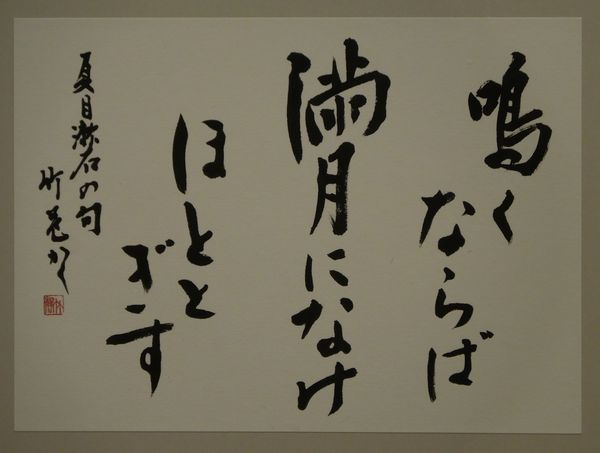 鳴くならば
満月になけ
ほととぎす
夏目漱石の句
竹